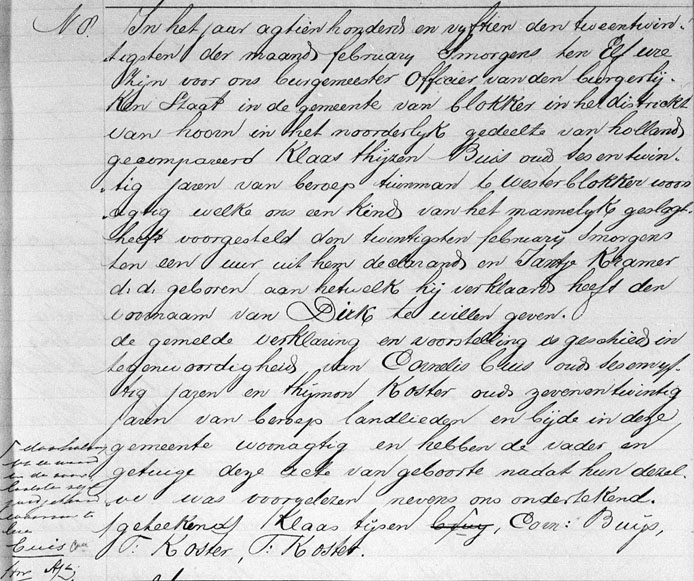 N 8.
In het jaar agtien honderd en vyftien den tweentwin-
tigsten der maand february Smorgens ten Elf ure
Zyn voor ons burgemeester Officier van den burgerly-
ken Staat in de gemeente van blokker in het districkt
van hoorn in het noorderlyk gedeelte van holland
gecompareerd Klaas thijzen Buis oud ses en twin-
tig jaren van beroep tuinman te Westerblokker woon
agtig welke ons een kind van het mannelyk geslagt
heeft voorgesteld den twintigsten february Smorgens
ten een uur uit hem declarand en Jantje Kramer
d: d: geboren aan hetwelk hij verklaard heeft den
voornaam van Dirk te willen geven.
de gemelde verklaring en voorstelling is geschied in
tegenwoordigheid van Cornelis buis oud ses en vyf-
tig jaren en thijmon Koster oud zevenentwintig
jaren van beroep landlieden en bijde in deze
gemeente woonagtig en hebben de vader en
getuige deze acte van geboorte nadat hun dezel-
ve was voorgelezen nevens ons ondertekend.
(geteekend) Klaas tijsen, Corn: Buijs,
T: Koster, T: Koster.
buis